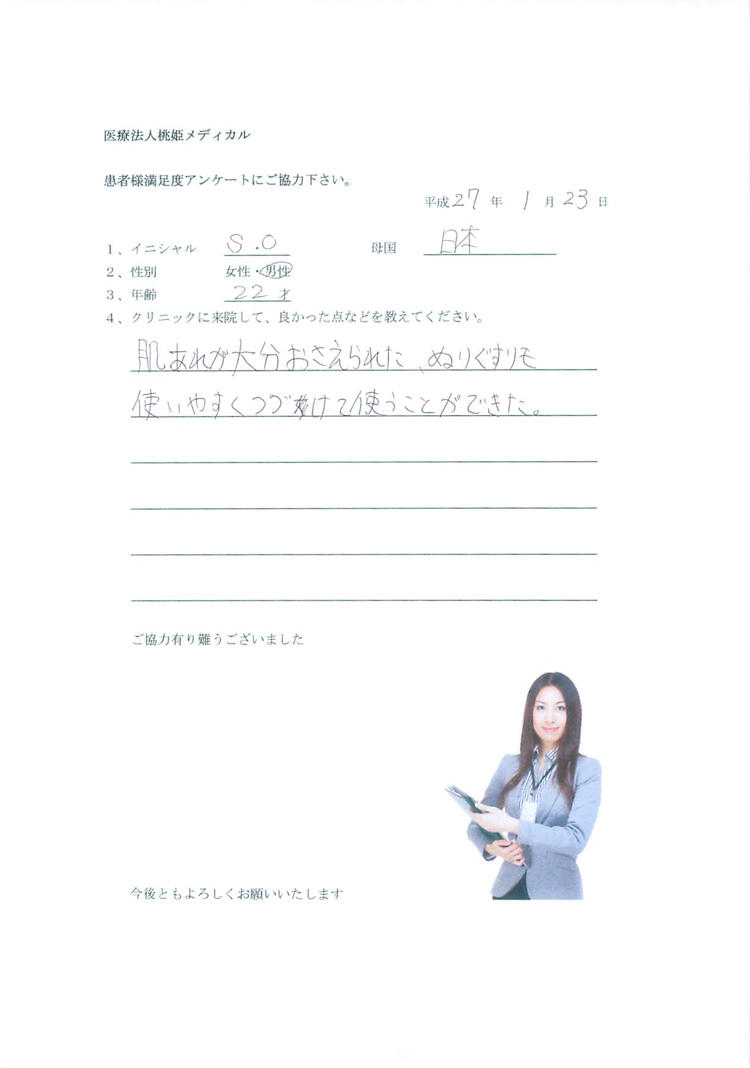 医療法人桃姫メディカル
患者様満足度アンケートにご協力下さい。
平成27年 1月23日
1、イニシャル S.O 母国 日本
2、性別 女性・男性
3、年齢 22才
4、クリニックに来院して、良かった点などを教えてください。
肌あれが大分おさえられた、ぬりぐすりも
使いやすくつづけて使うことができた。
ご協力有り難うございました
今後ともよろしくお願いいたします